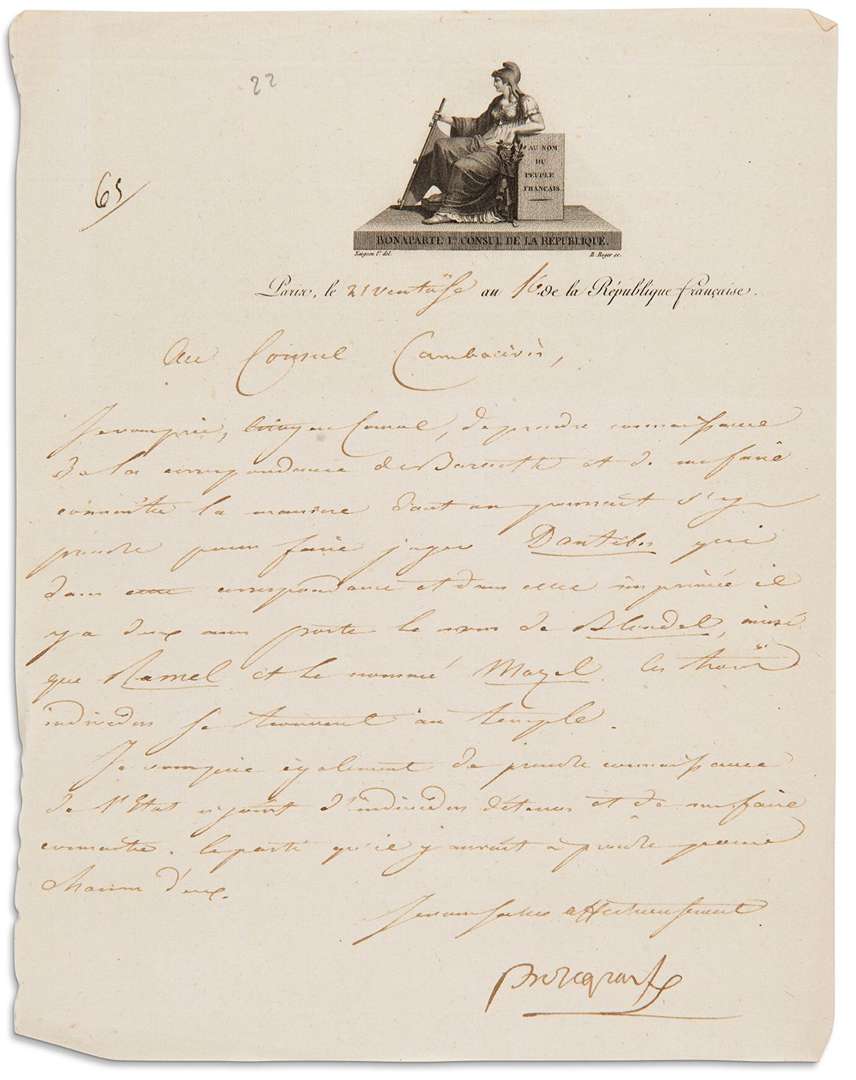 22
65
AU NOM
DU
PEUPLE
FRANÇAIS
BONAPARTE Ier CONSUL DE LA REPUBLIQUE.
B. Roger sc.
Paris, le 21 ventôse an de la République française.
Au Consul Cambacérès,
Je vous prie, Citoyen Consul, de prendre connaissance
de la correspondance de Bareuth et de me faire
connoître la manière dont on pourrait s'y
prendre pour faire juger qui
dans correspondance et dans celle imprimée il
y a deux ans porte le nom de Blondel, ainsi
que Ramel et le nommé Mazel. Ces trois
individus se trouvent au temple.
Je vous prie également de prendre connaissance
de l'Etat cijoint d'individus détenus et de me faire
connoitre le parti qu'il y aurait à prendre pour
chacun d'eux.
Je vous salue affectueusement
Bonaparte